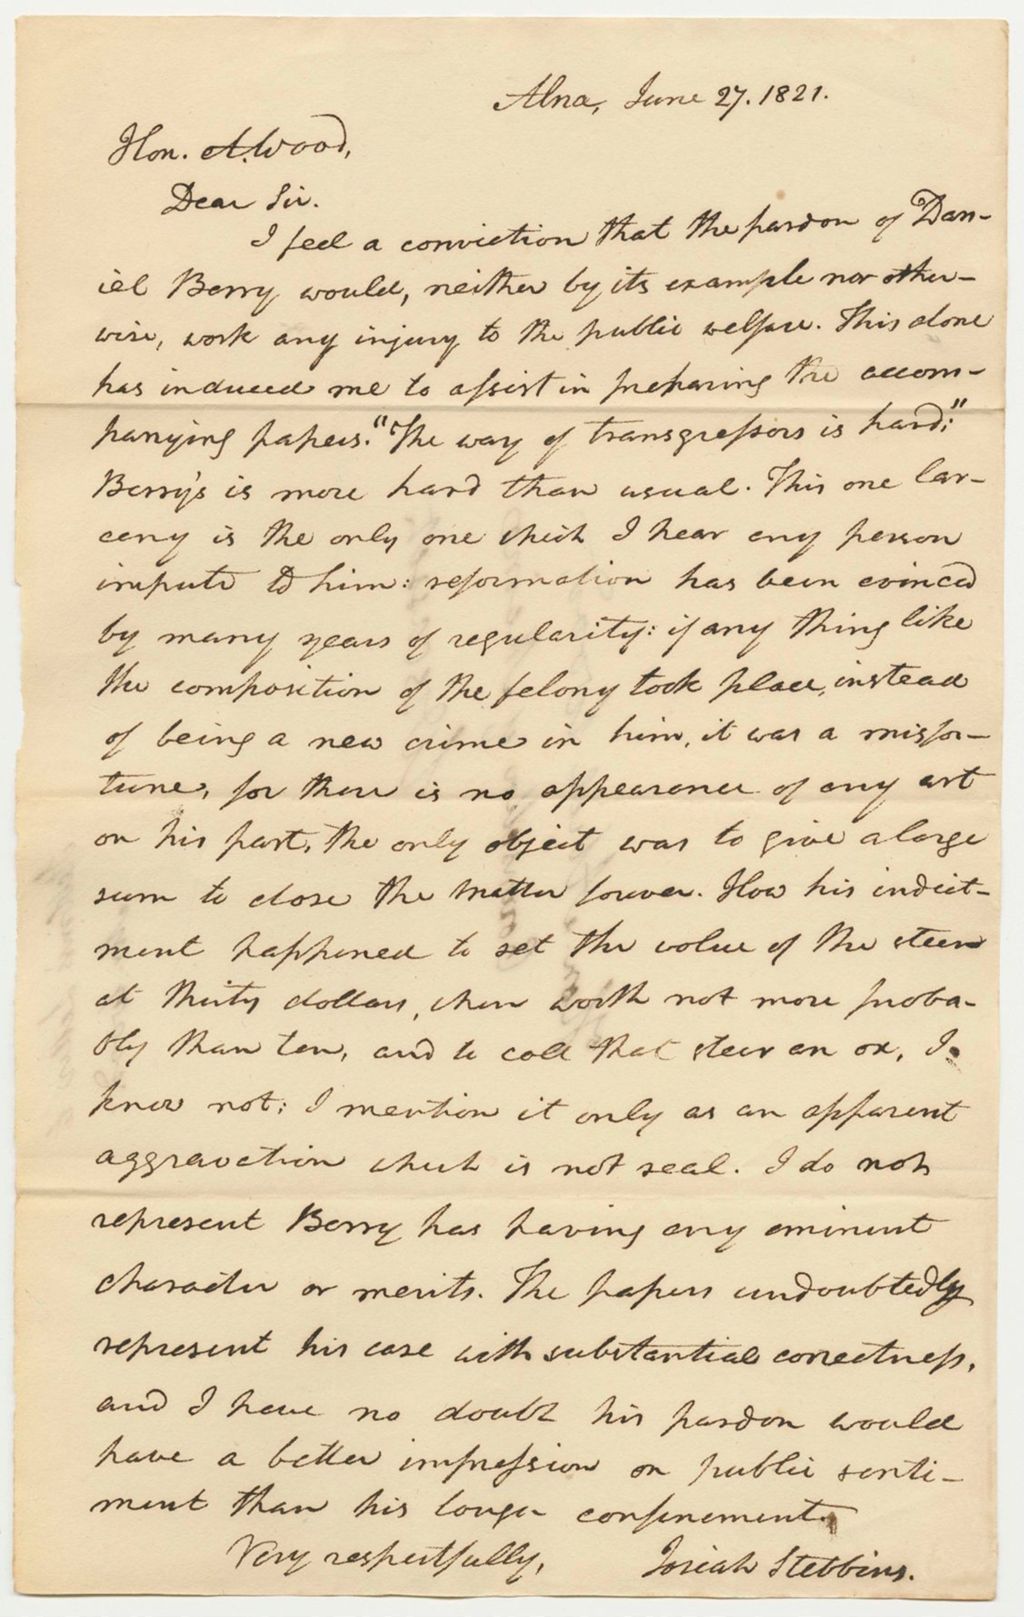 Alna, June 27. 1821.
Hon. A. Wood,
Dear Sir.
I feel a conviction that the pardon of Dan-
iel Berry would, neither by its example nor other-
wise, work any injury to the public welfare. This alone
has induced me to assist in preparing the accom-
panying papers. "The way of transgressors is hard;"
Berry's is more hard than usual. This one lar-
ceny is the only one which I hear any person
impute to him: reformation has been evinced
by many years of regularity: if any thing like
the composition of the felony took place, instead
of being a new crime in him, it was a misfor-
tune, for there is no appearance of any art
on his part, the only object was to give a large
sum to close the matter forever. How his indict-
ment happened to set the value of the steer
at thirty dollars, when worth not more proba-
bly than ten, and to call that steer an ox, I
know not: I mention it only as an apparent
aggravation which is not real. I do not
represent Berry has having any eminent
character or merits. The papers undoubtedly
represent his case with substantial correctness,
and I have no doubt his pardon would
have a better impression on public senti-
ment than his longer confinement.
Very respectfully, Josiah Stebbins.